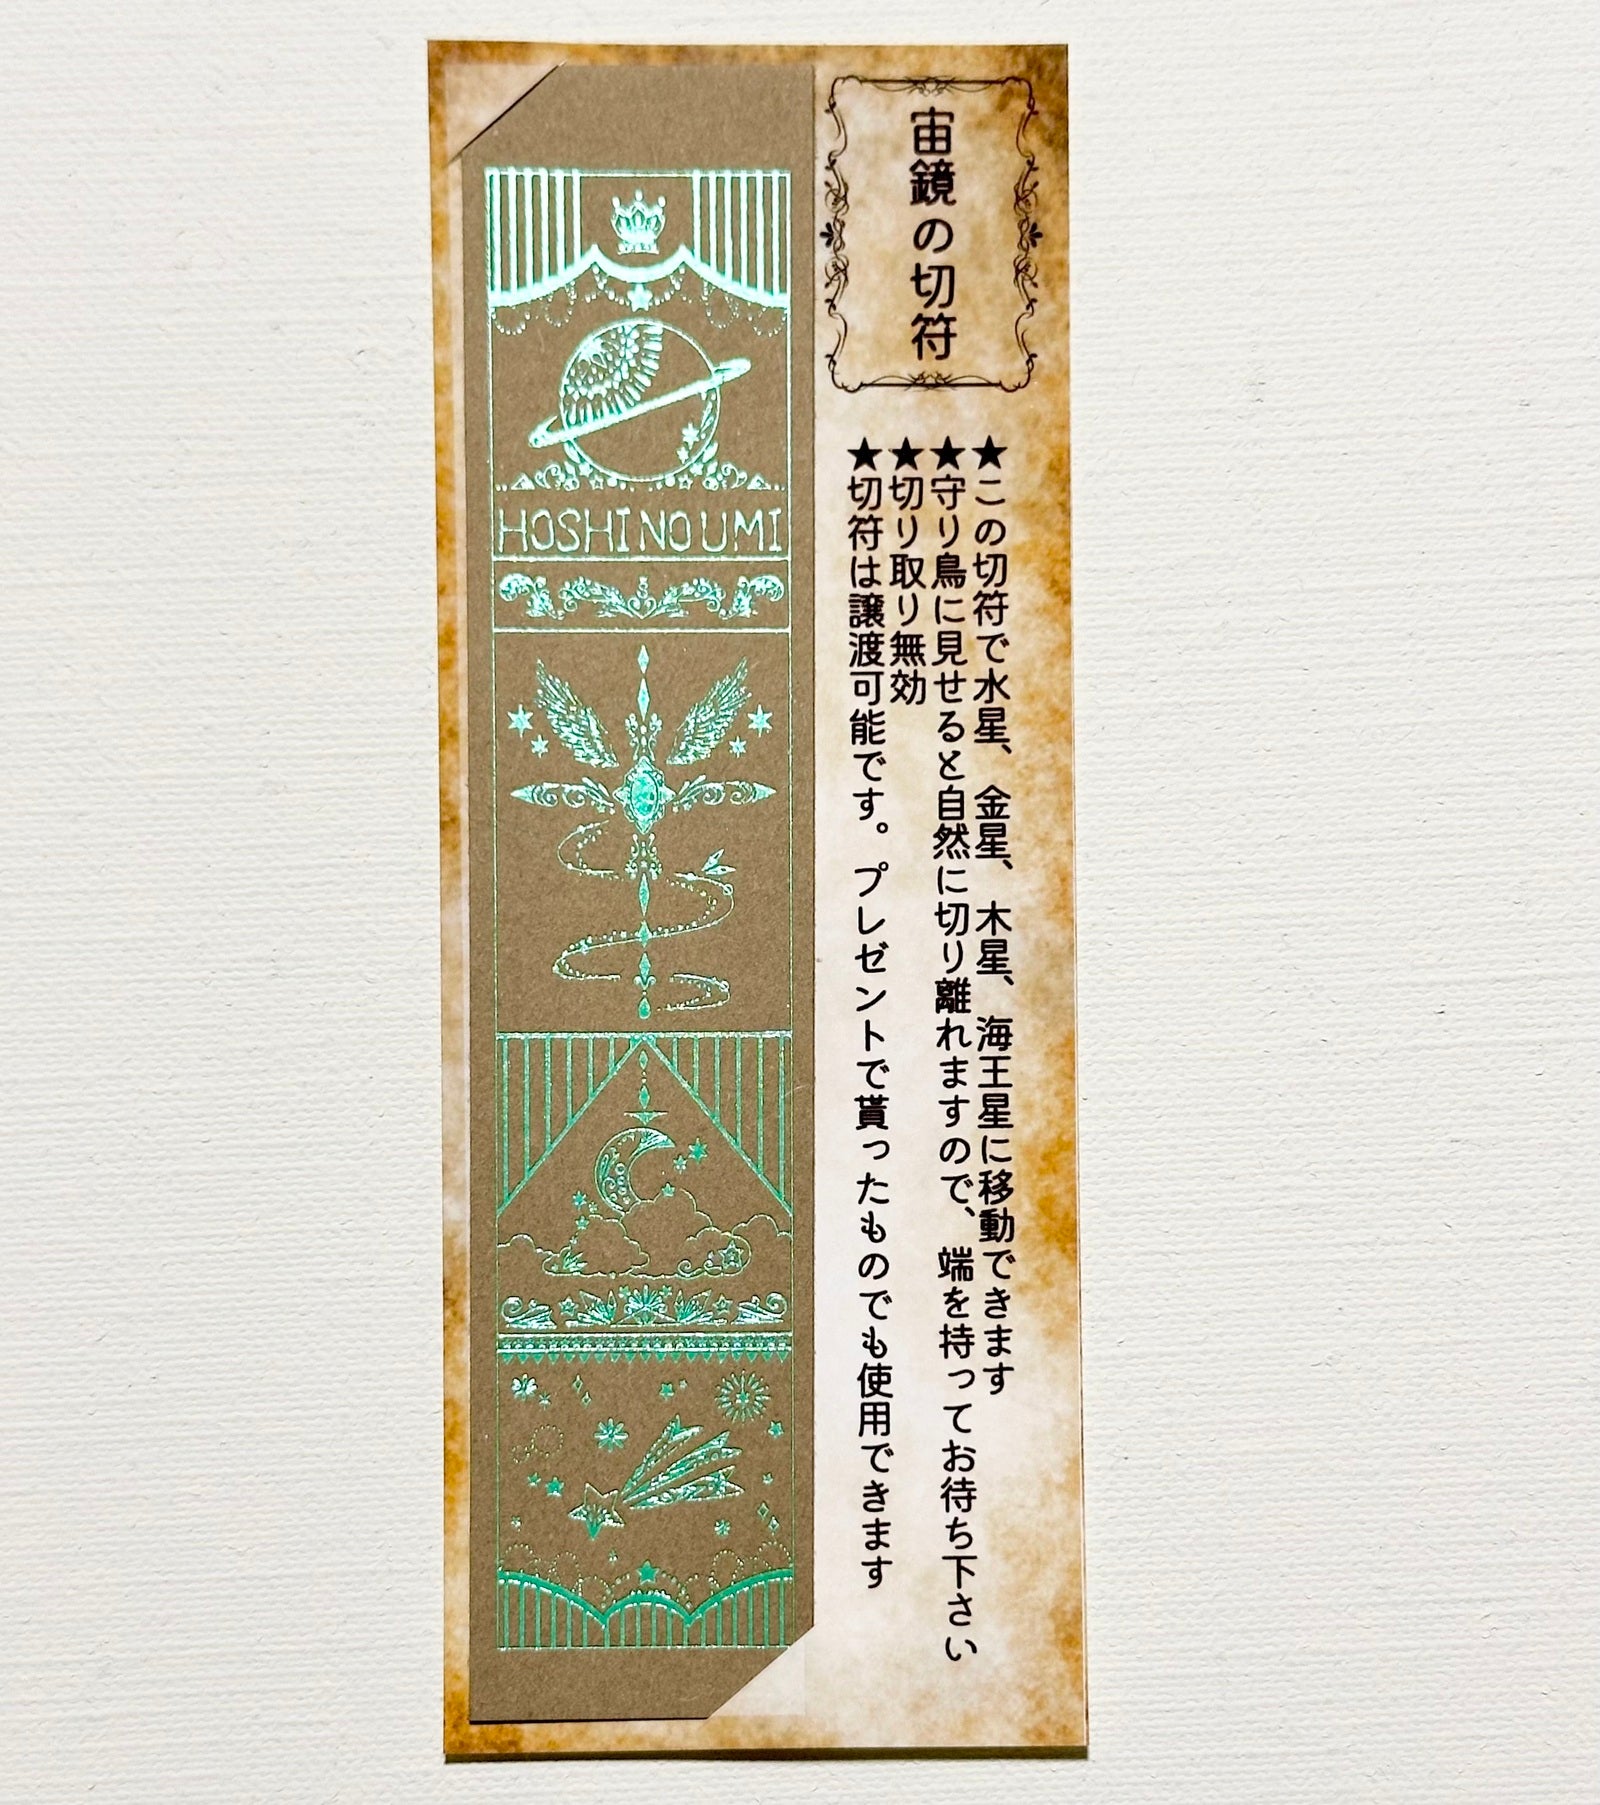 宙鏡の切符
★この切符で水星、金星、木星、海王星に移動できます
★守り鳥に見せると自然に切り離れますので、端を持ってお待ち下さい
★切り取り無効
★切符は譲渡可能です。プレゼントで貰ったものでも使用できます
HOSHI NO UMI